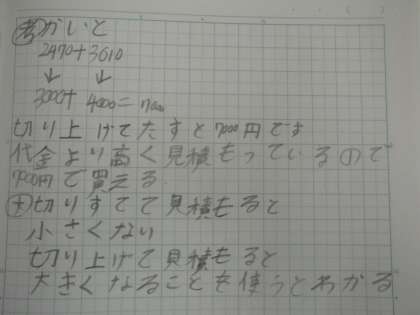 考 かいと
2470+3610
↓ ↓
3000+ 4000=7000
切り上げてたすと7000円です
代金より高く見積もっているので
7000円で買える
切りすてて見積もると
小さくない
切り上げて見積もると
大きくなることを使うとわかる